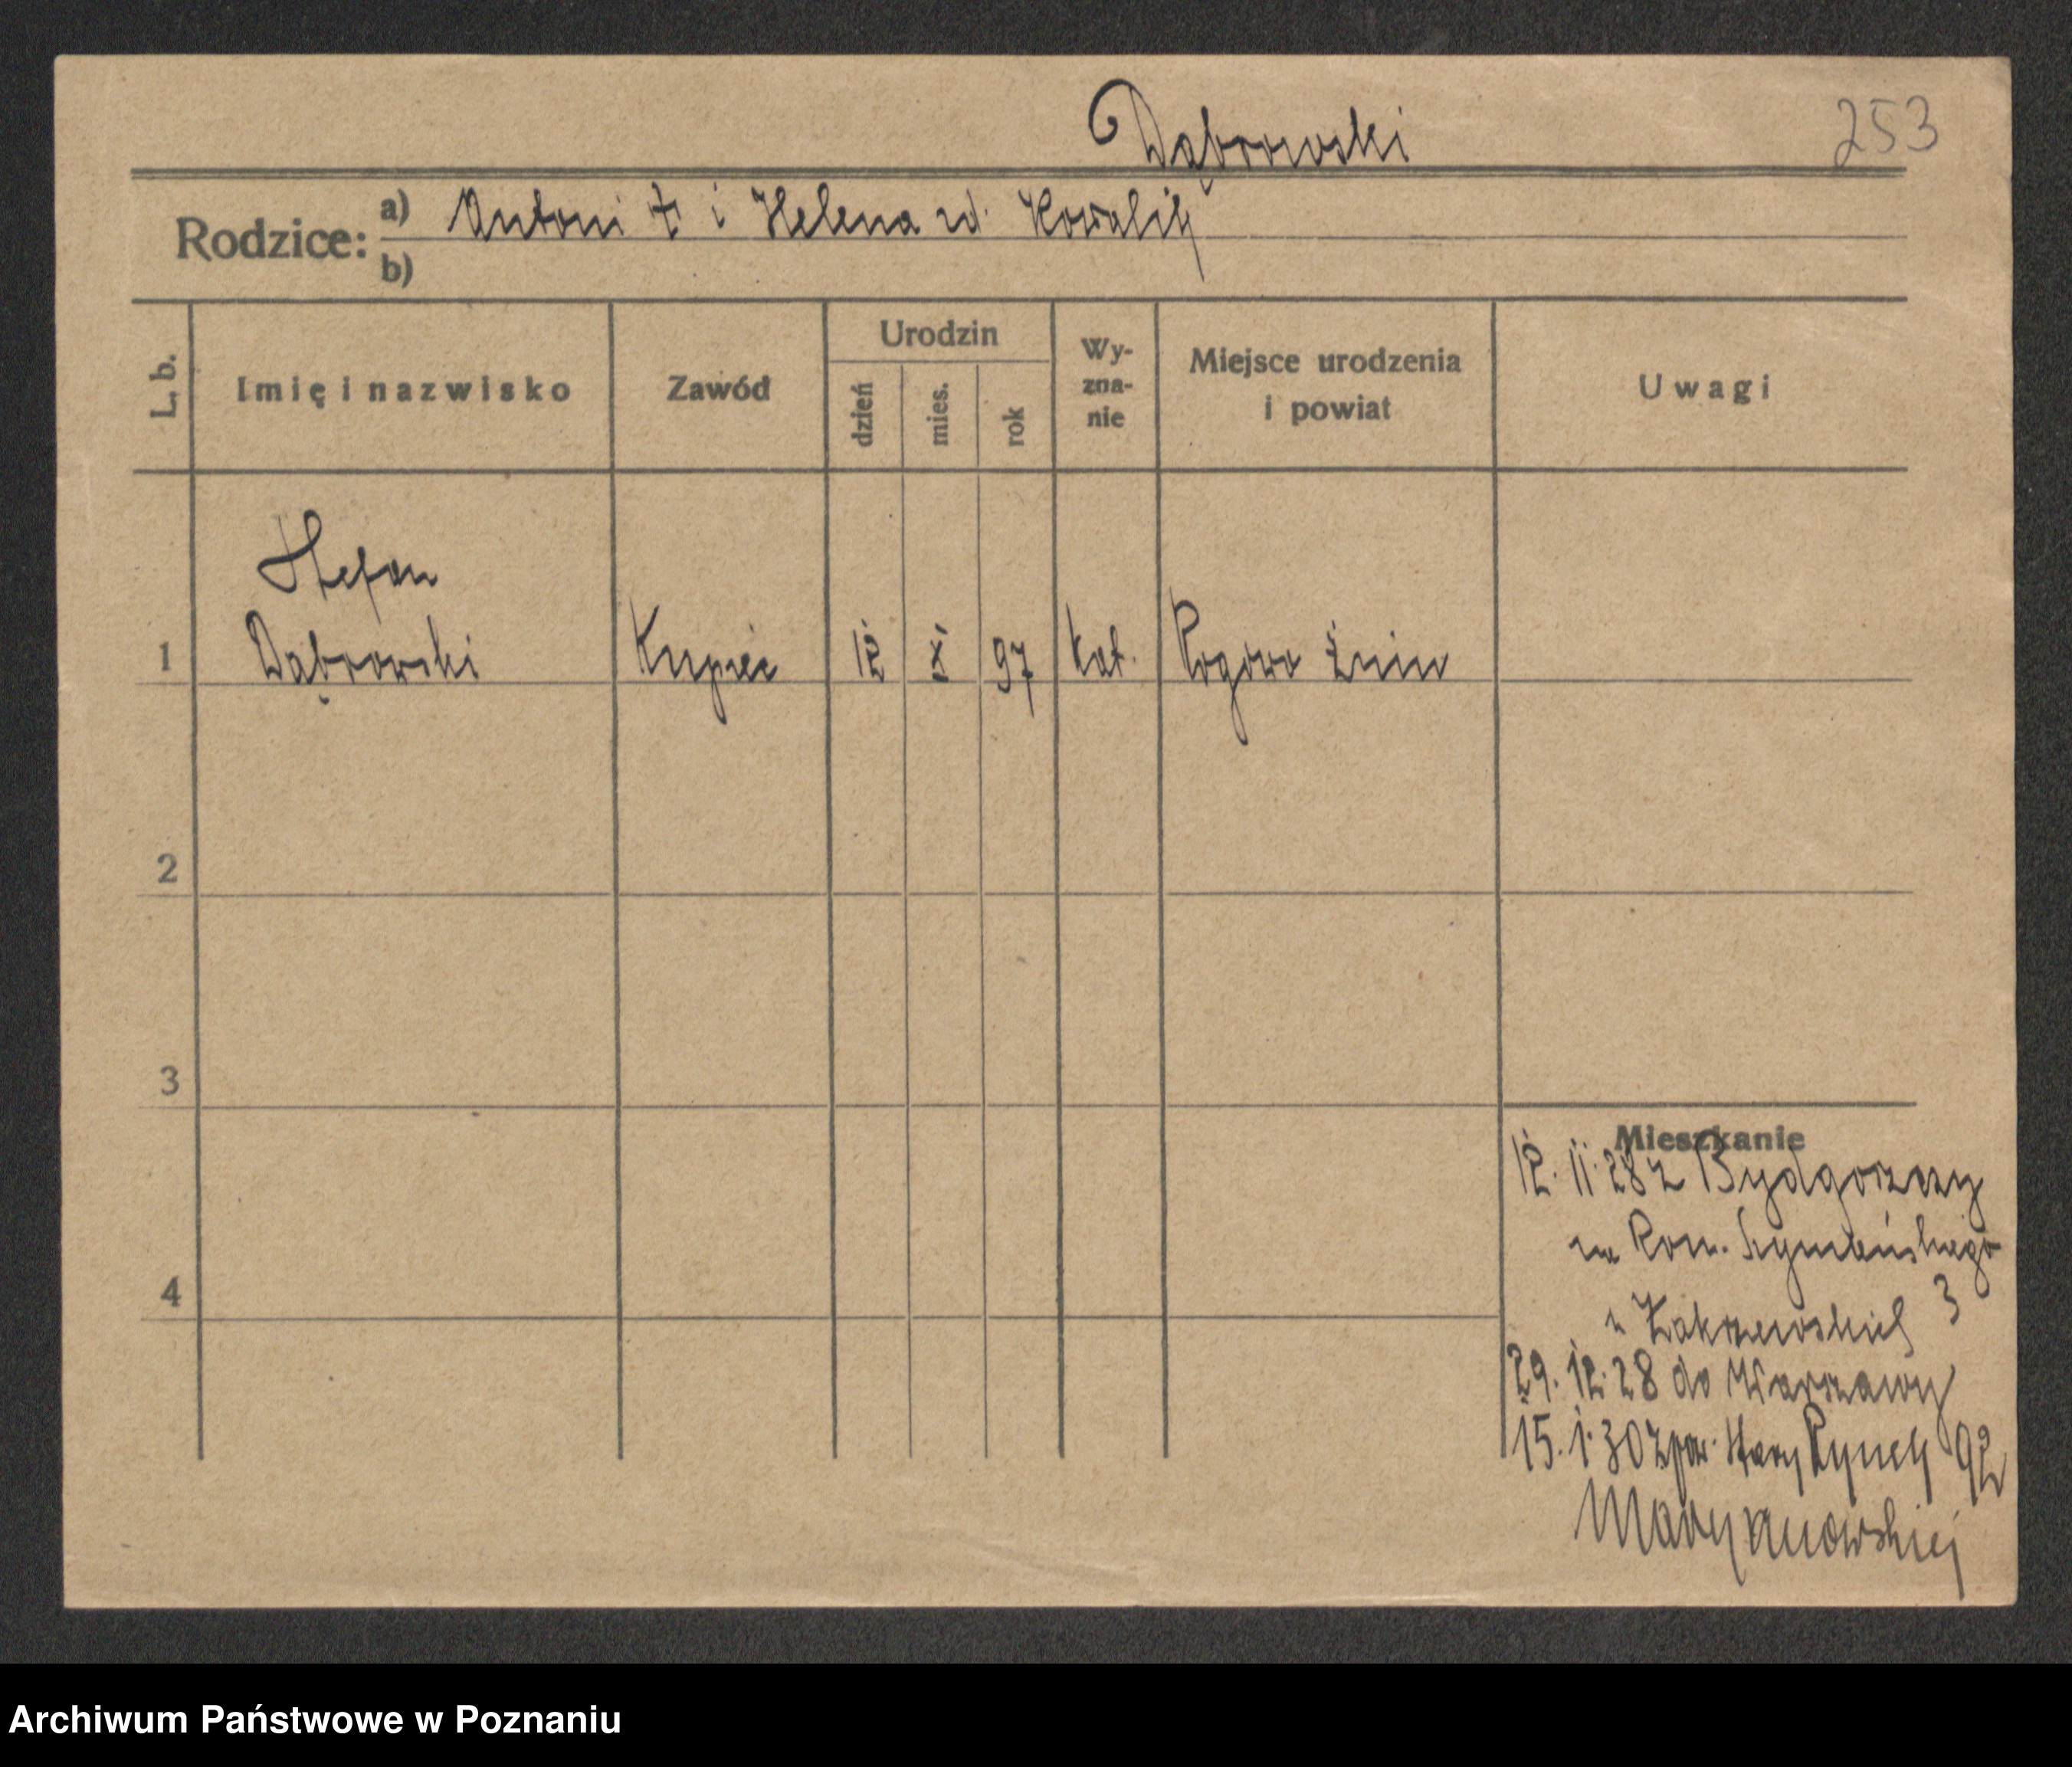 Dąbrowski
253
Rodzice:
a) Antoni † i Helena zd. Kowalik
b)
L. b.
Imię i nazwisko
Zawód
Urodzin
dzień
mies.
rok
Wy-
zna-
nie
Miejsce urodzenia
i powiat
Uwagi
Stefan
1 Dąbrowski Kupiec 12 X 97 kat. Rogowo Żnin
2
3
4
Mieszkanie
12. 11. 28 z Bydgoszczy
na Rom. Szymańskiego
u Zakrzewskich 3
29. 12. 28 do Warszawy
15. 1. 30 zpow. Stary Rynek 92
Archiwum Państwowe w Poznaniu